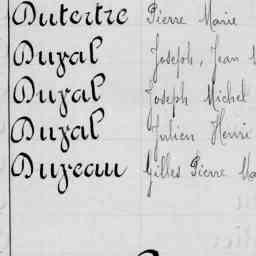 Dutertre Pierre Marie
Duval Joseph, Jean
Duval Joseph Michel
Duval Julien Henri
Duveau Gilles Pierre Ma